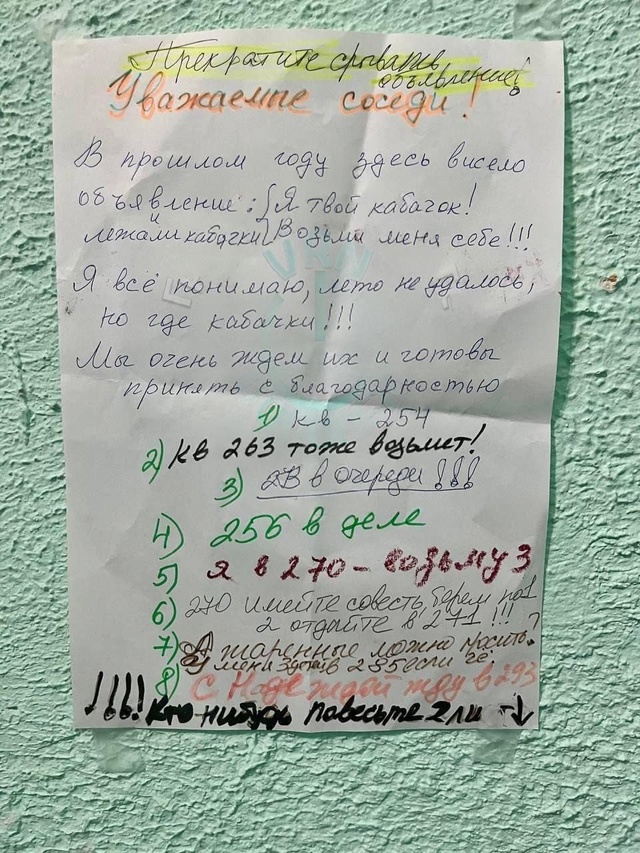 Прекратите срывать
объявление!
Уважаемые соседи!
В прошлом году здесь висело
объявление: Я твой кабачок!
и
лежали кабачки Возьми меня себе!!!
Я всё понимаю, лето не удалось,
но где кабачки!!!
Мы очень ждем их и готовы
принять с благодарностью
1) кв - 254
2) кв 263 тоже возьмет!
3) в очереди!!!
4) 256 в деле
5) я в 270 - возьму 3
6) 270 имейте совесть, берем по 1
2 отдайте в 271!!!
7) А жаренные можно просить?
У меня в 235 если че,
8) С Надеждой жду в 293
!!!! Кто нибудь повесьте 2 ли →↓